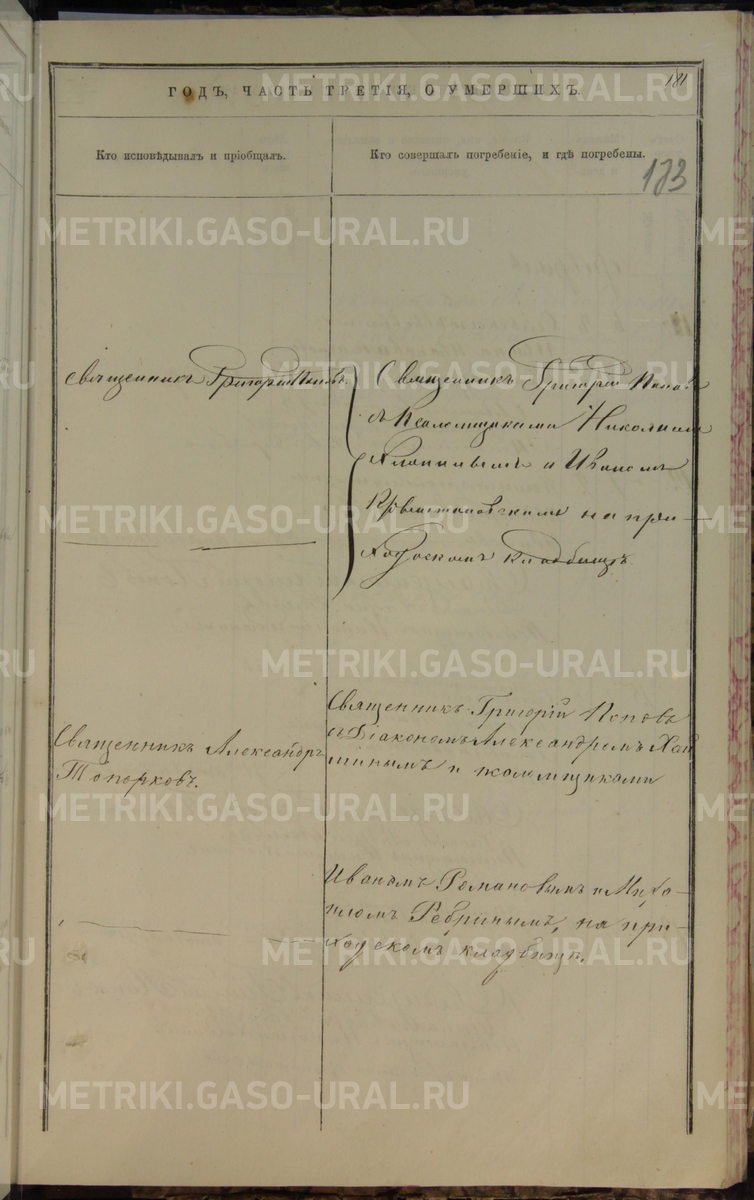 181
ГОДЪ, ЧАСТЬ ТРЕТІЯ, О УМЕРШИХЪ.
Кто исповѣдывалъ и пріобщалъ.
Кто совершалъ погребеніе, и гдѣ погребены.
183
METRIKI.GASO-URAL.RU
Священникъ Григорій Поповъ.
Священникъ Григорій Поповъ
съ Псаломщиками Николаемъ
и Иваномъ
на при-
ходскомъ кладбищѣ.
Священникъ Александръ
Топорковъ.
Священникъ Григорій Поповъ
съ Діакономъ Александромъ
и псаломщиками
Иваномъ Романовымъ и Миха-
иломъ Ребринымъ, на при-
ходскомъ кладбищѣ.